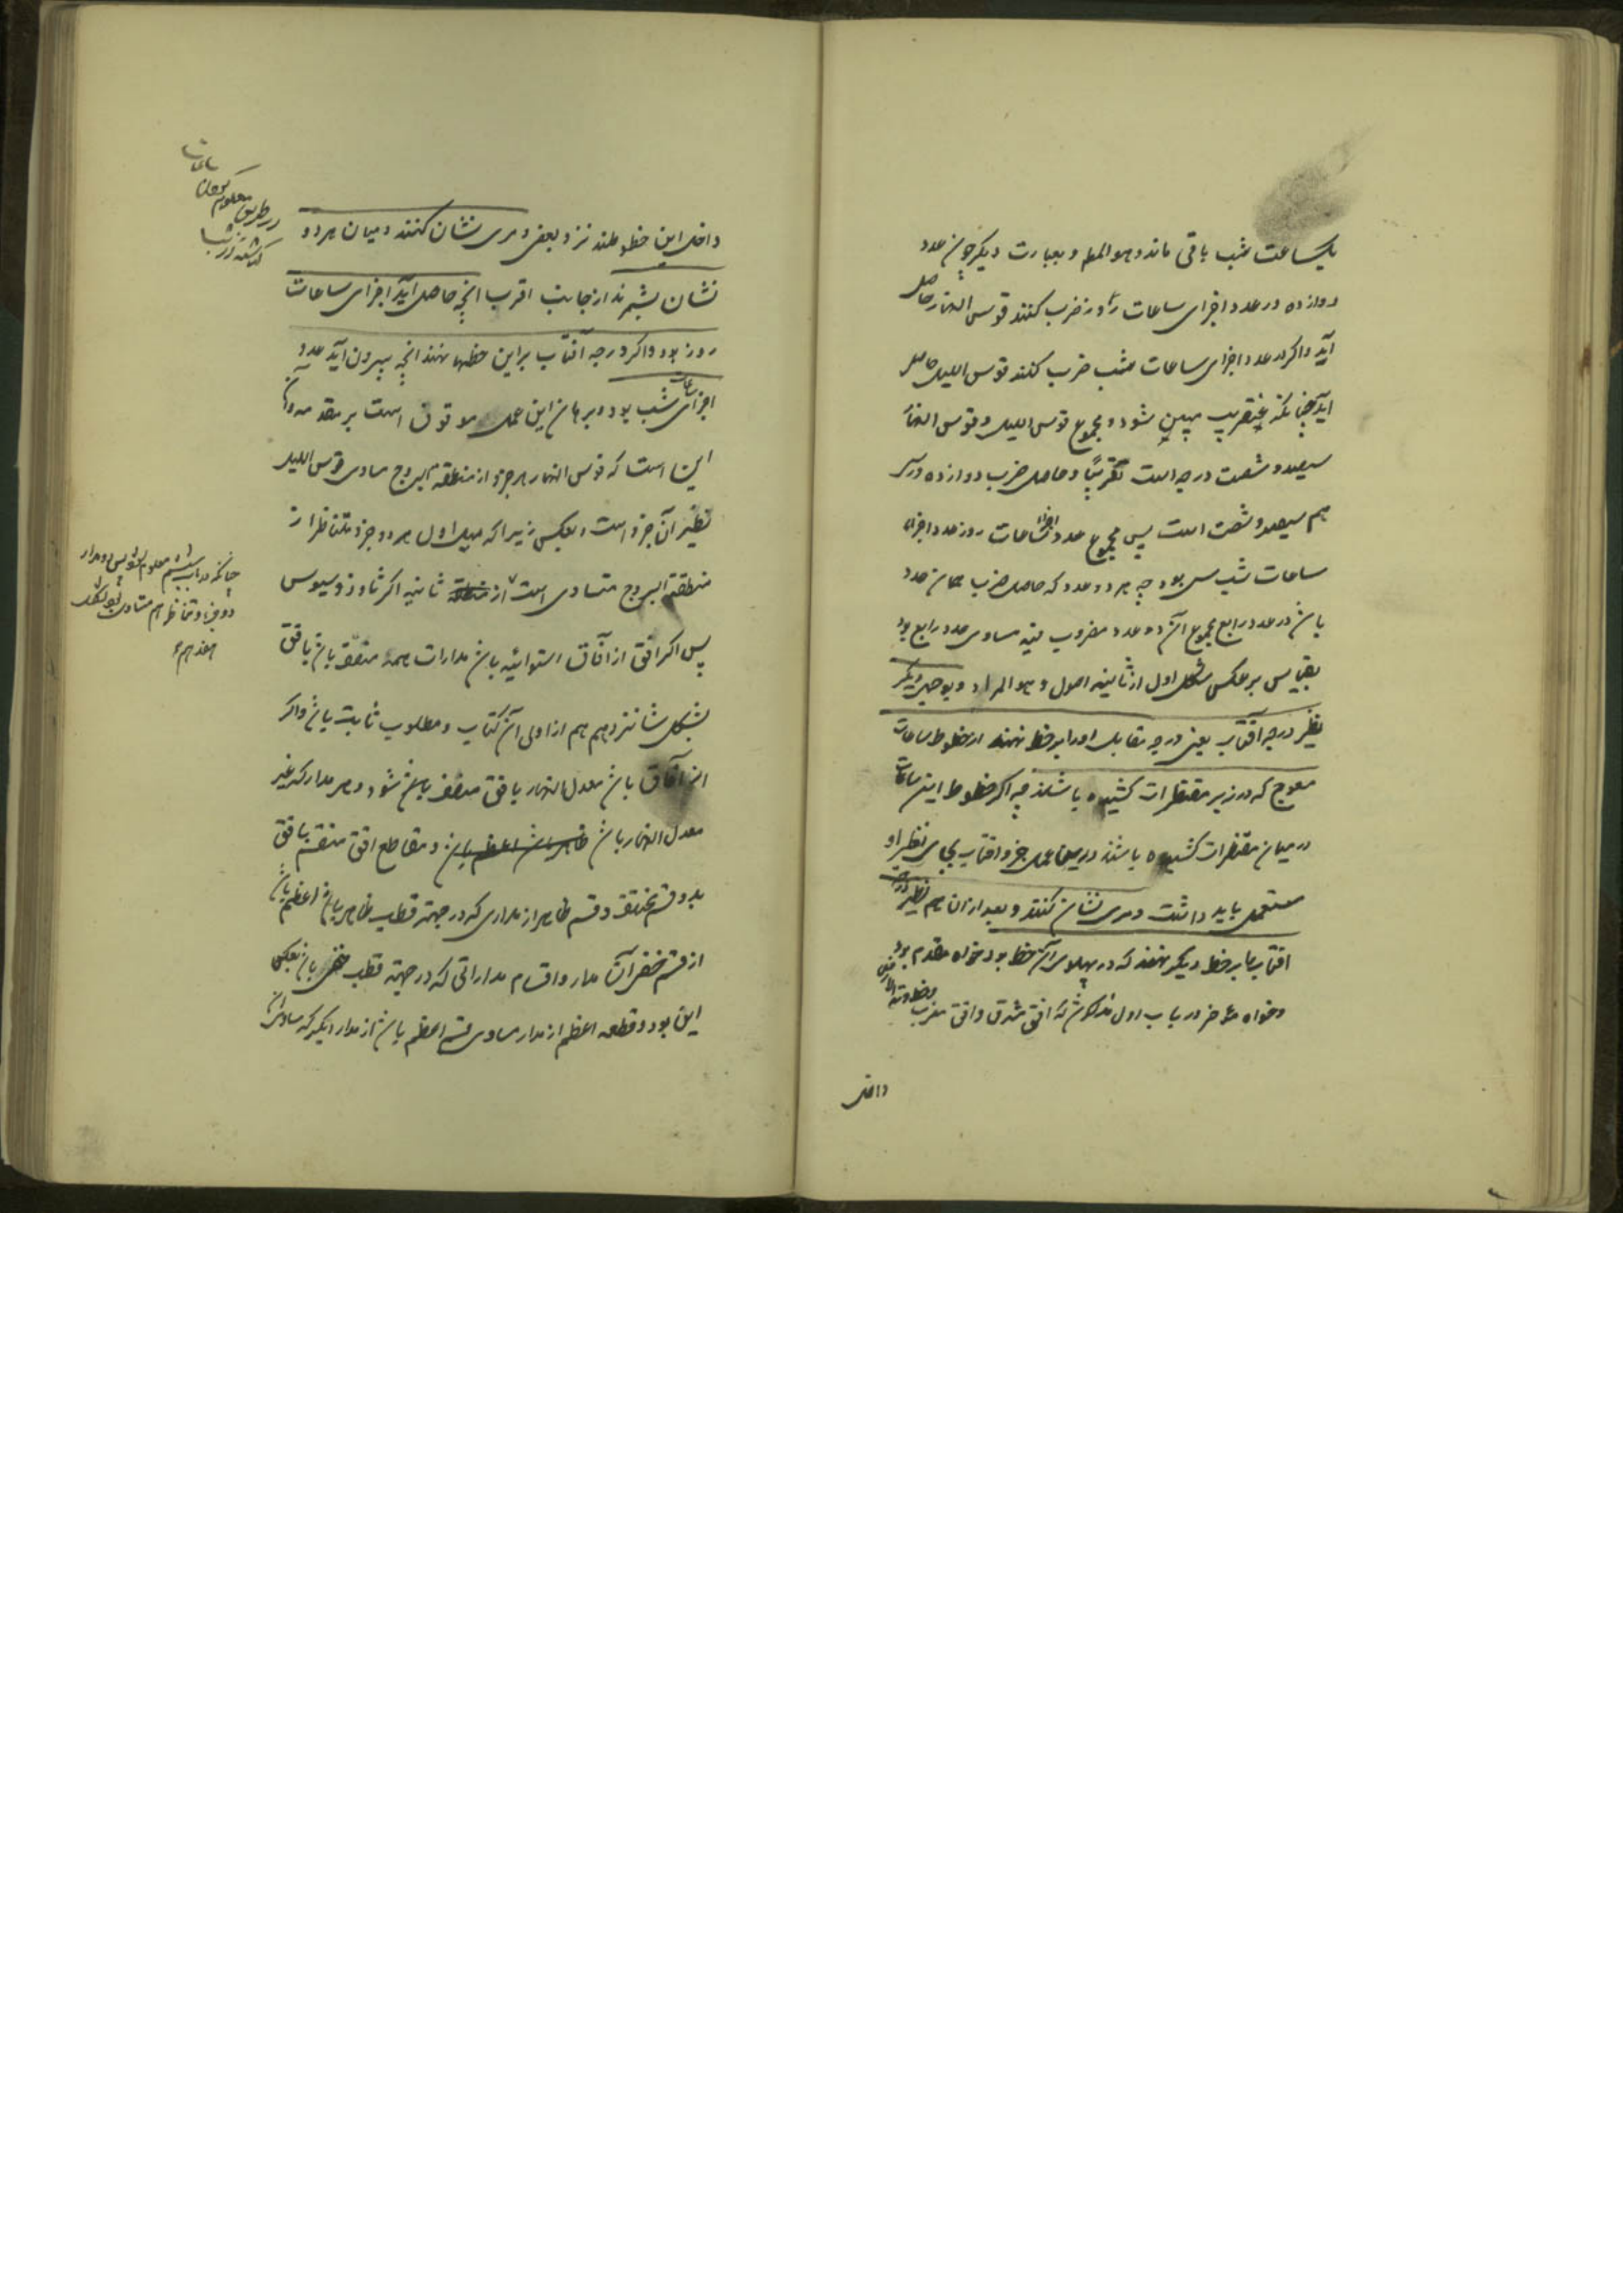 یکساعت شب باقی ماند و هو المطلوب و بعبارت دیگر چون عدد
دوازده در عدد اجزای ساعات روز ضرب کنند قوس النهار حاصل
آید و اگر در عدد اجزای ساعات شب ضرب کنند قوس اللیل حاصل
آید چنانکه عنقریب مبین شود و مجموع قوس اللیل و قوس النهار
سیصد و شصت درجه است تقریبًا و حاصل ضرب دوازده در سی
هم سیصد و شصت است پس مجموع عدد اجزاء ساعات روز و عدد اجزاء
ساعات شب سی بود چه هر دو عدد که حاصل ضرب همان عدد
باشد در عدد رابع مجموع آن دو عدد مضروب فیه مساوی عدد رابع بود
بقیاس بر عکس شکل اول از ثانیه اصول و هو المراد و بوجهی دیگر
نظیر درجه آفتاب یعنی درجه مقابل او را بر خط نهند از خطوط ساعات
معوج که در زیر مقنطرات کشیده باشند چه اگر خطوط این ساعات
در میان مقنطرات کشیده باشند درین عمل جزو افتاب بجای نظیر او
مستعمل باید داشت و مری نشان کنند و بعد از ان هم نظیر درجه
افتاب را بر خط دیگر نهند که در پهلوی آن خط بود خواه مقدم بود
و خواه مؤخر در باب اول مذکور شد که افق مشرق و افق مغرب
داخل
داخل این خطوطند نزد بعضی و مری نشان کنند و میان هر دو
نشان بشمرند از جانب اقرب انچه حاصل آید اجزای ساعات
روز بود و اگر درجه آفتاب بر این خطها نهند انچه بیرون آید عدد
اجزای ساعات شب بود و برهان این عمل موقوف است بر مقدمه و آن
این است که قوس النهار هر جزو از منطقه البروج مساوی قوس اللیل
نظیر آن جزو است و بعکس زیرا که میل اول هر دو جزو متناظر از
منطقة البروج متساوی است از ثانیه اکر ثاوذوسیوس
پس اگر افق از آفاق استوائیه باشد مدارات همه منصف باشد بافق
بشکل شانزدهم هم از اولی آن کتاب و مطلوب ثابت باشد و اگر
از آفاق باشد معدل النهار بافق منصف باشد و هر مدار که غیر
معدل النهار باشد و مقاطع افق منقسم بافق
بدو قسم مختلف و قسم ظاهر از مداری که در جهة قطب ظاهر باشد اعظم باشد
از قسم خفی آن مدار و اقسام مداراتی که در جهة قطب خفی باشد بعکس
این بود و قطعه اعظم از مدار مساوی قسم اعظم باشد از مدار دیگر که مساوی آن
ساعات
معلوم
در طریق
چنانکه در باب ششم معلوم
دو جزو متناظر هم متساوی
هفدهم